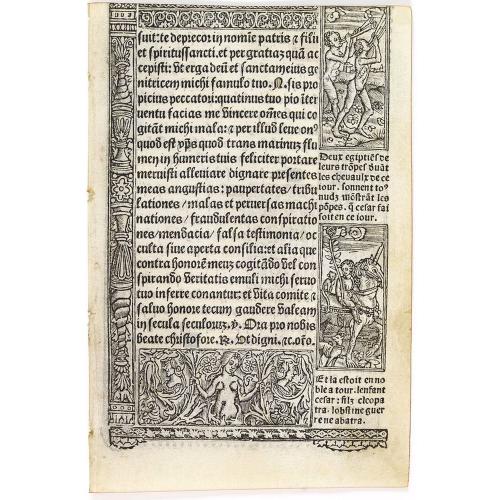 suit: te deprecor in nomīe patris ⁊ filii
et spiritussancti. et per gratiaꝫ quā ac
cepisti: vt erga deū et sanctam eius ge
nitricem michi famulo tuo. N. sis pro
picius peccatori: quatinus tuo pio īter
ventu facias me vincere om̄es qui co
gitāt michi mala: ⁊ per illud leve on⁹
quod est xp̄s quod trans marinuꝫ flu
men in humeris tuis feliciter portare
meruisti alleviare digneris presentes
meas angustias: paupertates / tribu
lationes / malas et perversas machi
nationes / fraudulentas conspiratio
nes / mendacia / falsa testimonia / oc
culta sive aperta consilia: et alia que
contra honorē meuꝫ cogitādo vel con
spirando veritatis emuli michi servo
tuo inferre conantur: et vita comite ⁊
salvo honore tecum gaudere valeam
in secula seculoruꝫ. v. Ora pro nobis
beate christofore. R. Ut digni. ⁊c. oro.
Deux egiptiēs de
leurs trōpes dvāt
les chevaulx de ce
tour. sonnent to⁹
nudz mōstrāt les
pōpes. q̄ cesar fai
soit en ce iour.
Et la estoit en no
ble atour. lenfant
cesar: filz cleopa
tra. lobstine guer
re ne abatra.